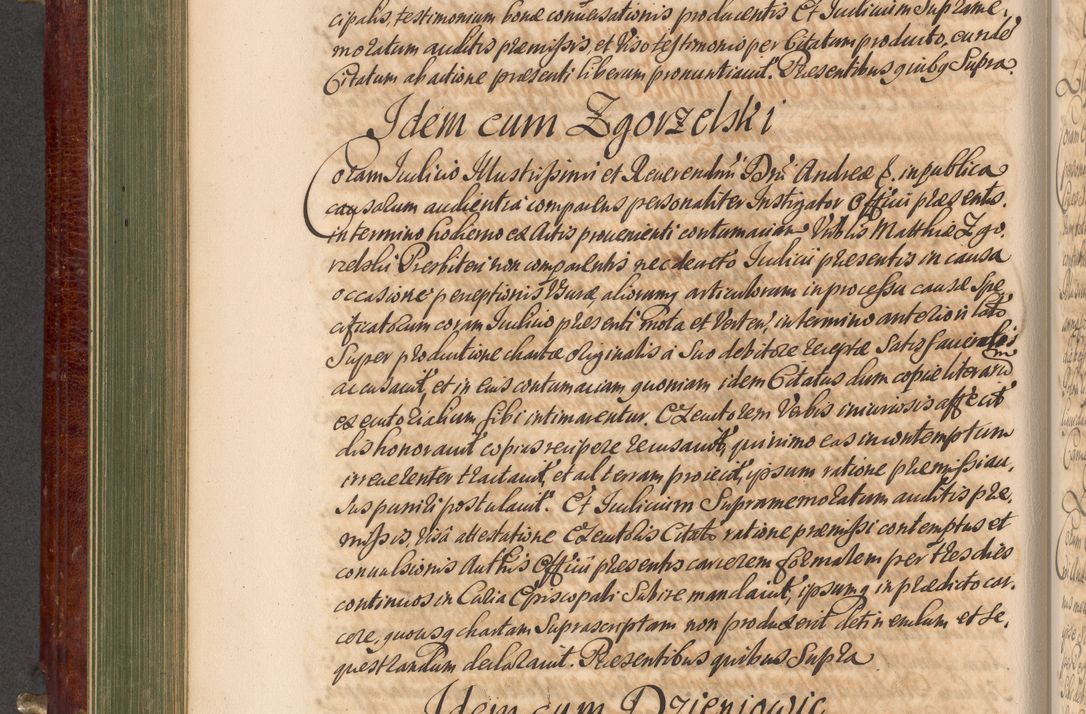 cipalis, testimonium bonæ conversationis producentis Et Iudicium Suprame,
moratum auditis præmissis, et viso testimonio per Citatum producto, eundẽ
Citatum ab actione præsenti liberum pronuntiavit. Præsentibus quibq Supra.
Idem cum Zgorzelski
Coram Iudicio Illustrissimi et Reverendmi Dñi Andreæ E. in publica
causarum audientia comparens personaliter Instigator Officii præsentis.
in termino hodierno ex Actis provenienti contumaciam Vblis Matthiæ Zgo,
rzelski Præsbiteri non comparentis nec de acto Iudicii præsentis in causa
occasione perceptionis Vsuræ aliorumq articulorum in processu causæ Spe,
cificatorum coram Iudicio præsenti mota et Verteñ, in termino anteriori lato
Super productione chartæ originalis à Suo debitore receptæ Satisfacieralis
accusavit, et in eius contumaciam, quoniam idem Citatus dum copiæ literarũ
executorialium sibi intimarentur. Executorem Verbis iniuriosis affecit
dishonoravit copias recipere recusavit, quinimo eas in contemptum
irreverenter tractavit, et ad terram proiecit, ipsum ratione præmissi au,
sus puniri postulavit. Et Iudicium Supramemoratum auditis præ,
missis, visâ attestatione Exentoris Citato ratione præmissi contemptus et
convulsionis Authis Officii præsentis carcerem formalem per tres dies
continuos in Curia Episcopali Subire mandavit, ipsumq in prædicto car,
cere, quousq chartam Suprascriptam non produxerit detinendum et Se,
questrandum declaravit. Præsentibus quibus Supra
Idem cum Dzieniowic